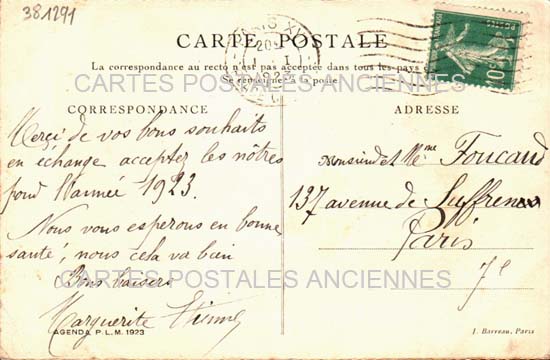 381291
PARIS XV
20
1923
10c
POSTES
CARTE POSTALE
La correspondance au recto n'est pas acceptée dans tous les pays
Se renseigner à la poste
CARTES POSTALES ANCIENNES
CORRESPONDANCE
Merçi de vos bons souhaits
en échange acceptez les nôtres
pour l'année 1923.
Nous vous esperons en bonne
santé, nous cela va bien
Bons baisers
Marguerite
AGENDA P. L. M. 1923
ADRESSE
Monsieur et Mme Foucaud
137 avenue de Suffren
Paris
7e
CARTES POSTALES ANCIENNES
J. Barreau, Paris